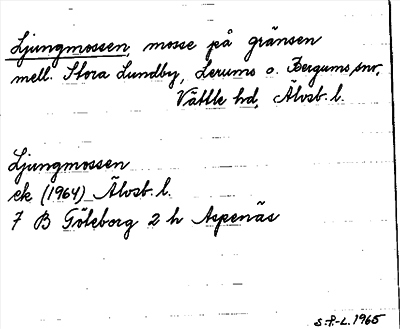 Ljungmossen, mosse på gränsen
mell. Stora Lundby, Lerums o. Bergums snr,
Vättle hd, Älvsb. l.
Ljungmossen
ek (1964) Älvsb. l.
7 B Göteborg 2 h Aspenäs
S.P-L. 1965